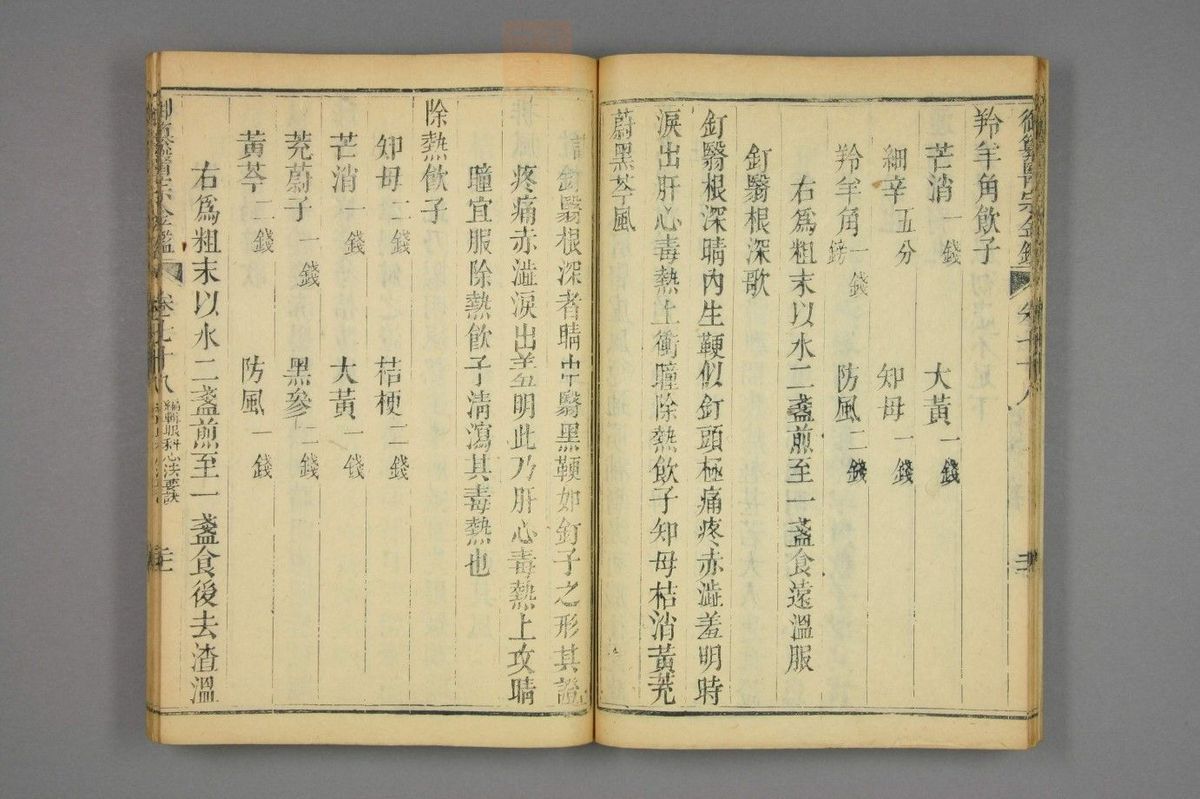 御纂醫宗金鑑 卷七十八
羚羊角飲子
芒消一錢 大黃一錢
細辛五分 知母一錢
羚羊角一錢鎊 防風二錢
右爲粗末以水二盞煎至一盞食遠溫服
釘翳根深歌
釘翳根深睛內生鞕似釘頭極痛疼赤澁羞明時
淚出肝心毒熱上衝瞳除熱飲子知母桔消黃茺
蔚黑芩風
註釘翳根深者睛中翳黑鞕如釘子之形其證
疼痛赤澁淚出羞明此乃肝心毒熱上攻睛
瞳宜服除熱飲子淸瀉其毒熱也
除熱飲子
知母二錢 桔梗二錢
芒消一錢 大黃一錢
茺蔚子一錢 黑參二錢
黃芩二錢 防風一錢
右爲粗末以水二盞煎至一盞食後去渣溫
御纂醫宗金鑑 卷七十八 編輯眼科心法要訣